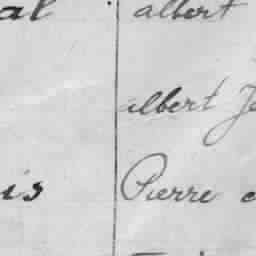 al albert
albert
is Pierre